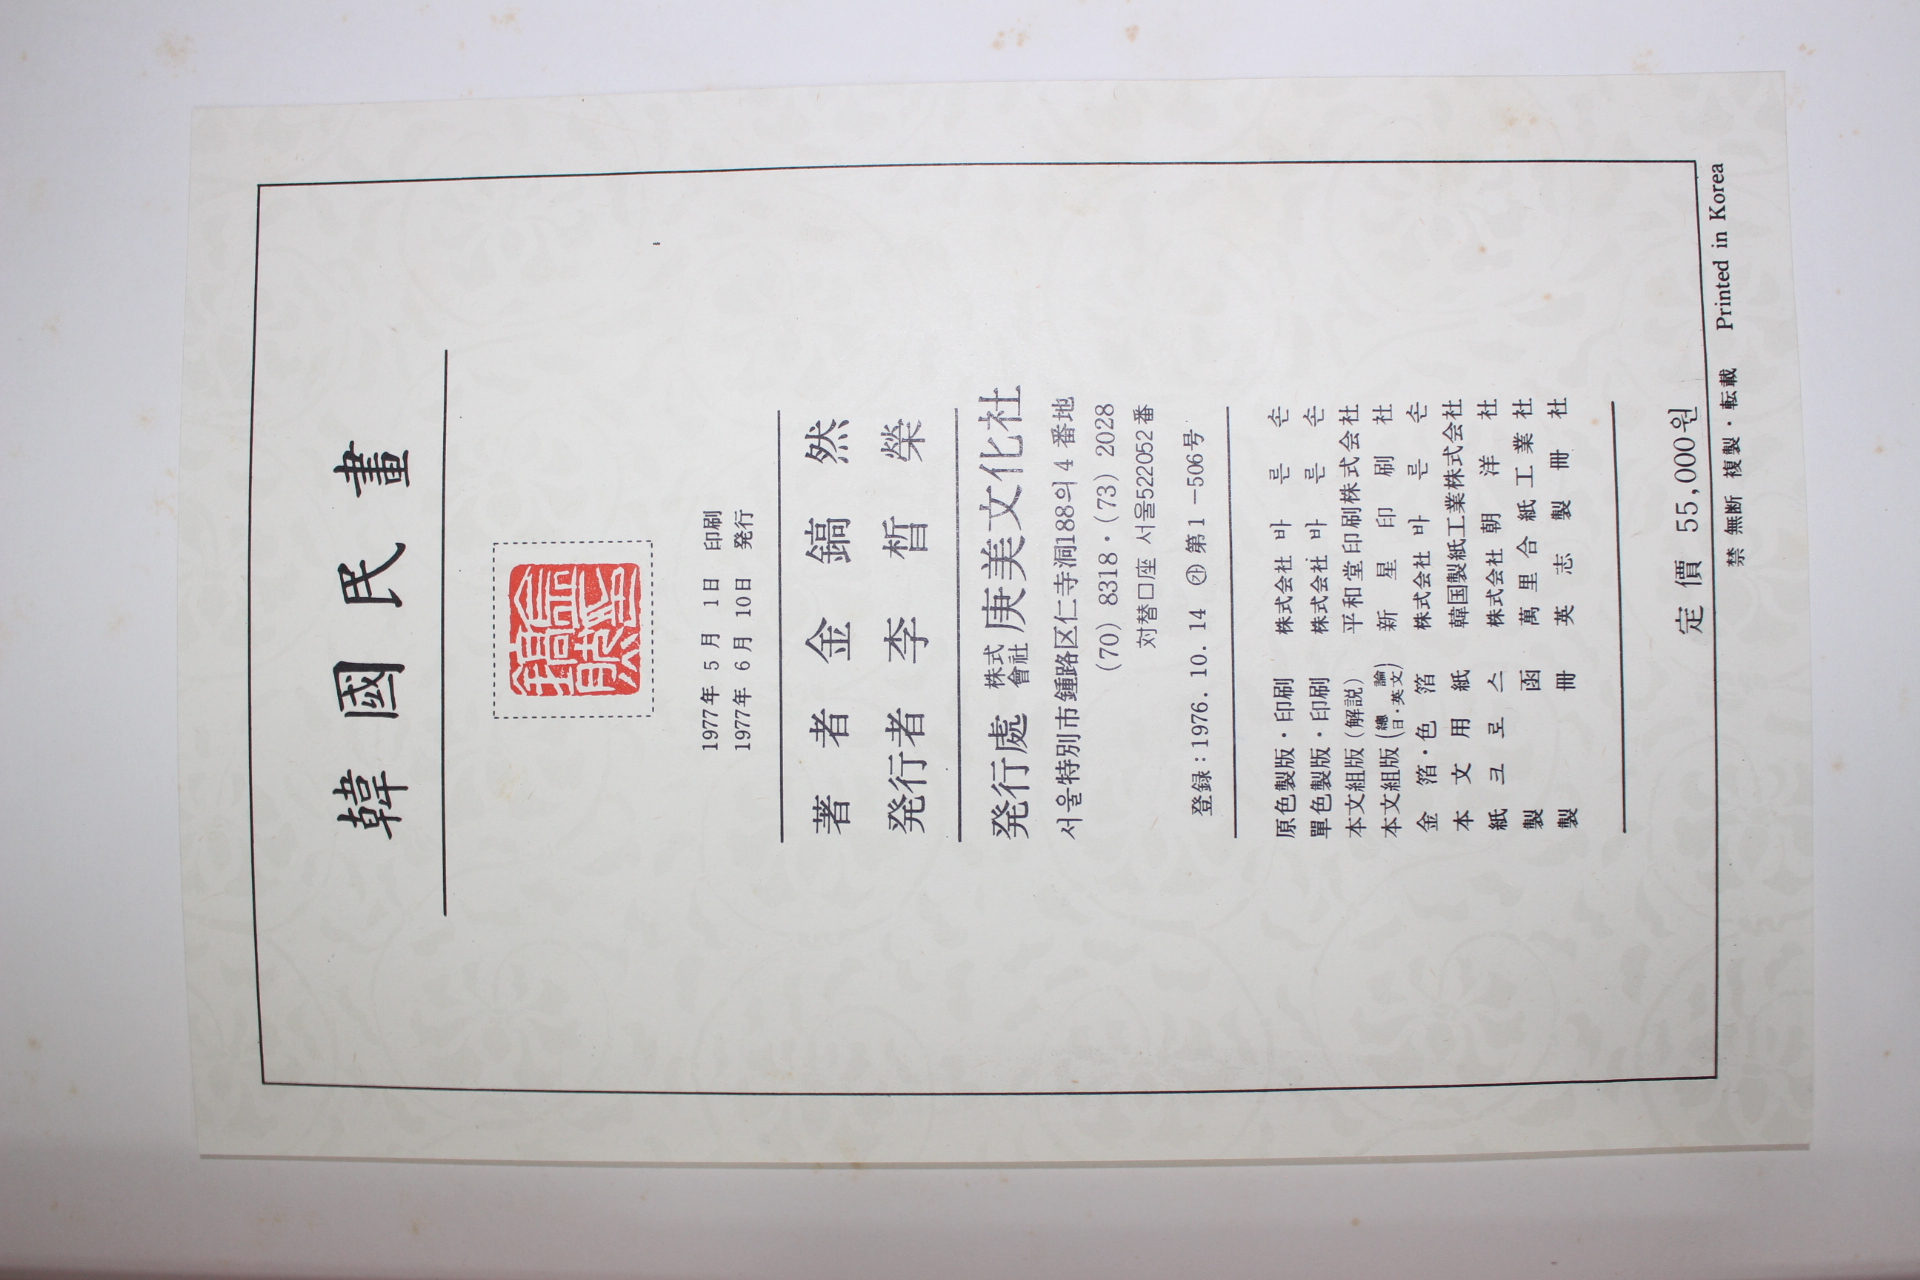 韓國民畫
1977年 5月 1日 印刷
1977年 6月 10日 発行
著者 金鎬然
発行者 李晳榮
発行處 株式會社 庚美文化社
서울特別市鍾路区仁寺洞188의4番地
(70) 8318・(73) 2028
対替口座 서울522052番
登録：1976. 10. 14 ㉮ 第1－506号
原色製版・印刷 株式会社 바른손
單色製版・印刷 株式会社 바른손
本文組版（解説） 平和堂印刷株式会社
本文組版（總論 日・英文） 新星印刷社
金箔・色箔 株式会社 바른손
本文用紙 韓国製紙工業株式会社
紙크로스 株式会社 朝洋社
製函 萬里合紙工業社
製冊 英志製冊社
定價 55,000원
禁 無断 複製・転載 Printed in Korea